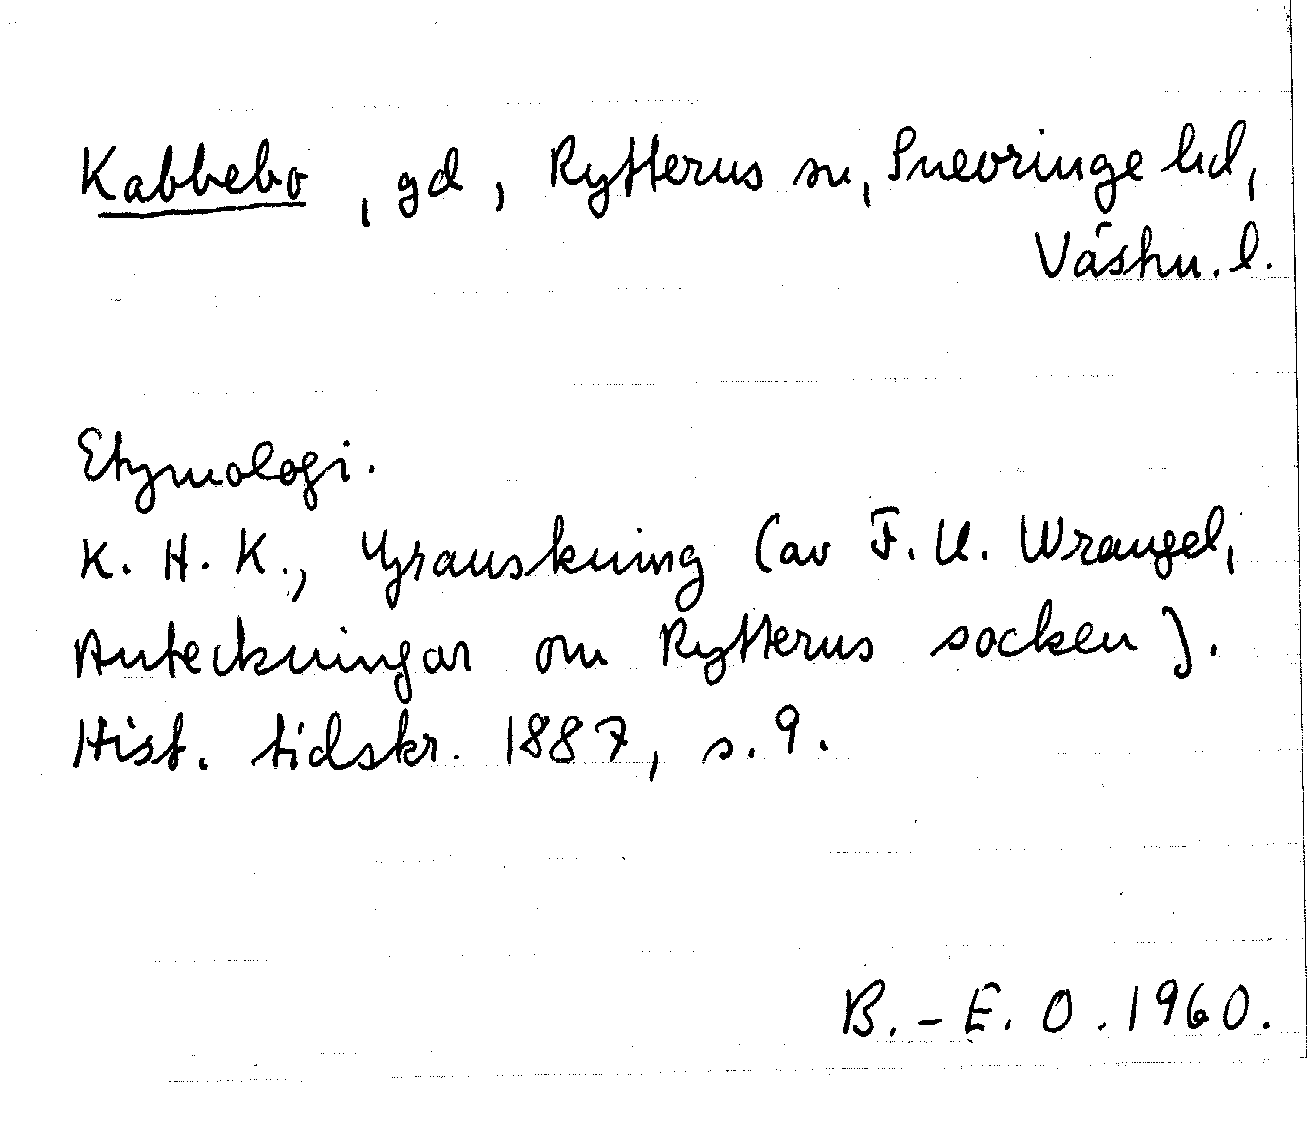 Kabbebo, gd, Rytterus sn, Snevringe hd,
Västm. l.
Etymologi.
K. H. K., Granskning (av F. U. Wrangel,
Anteckningar om Rytterus socken).
Hist. tidskr. 1887, s. 9.
B.-E. O. 1960.